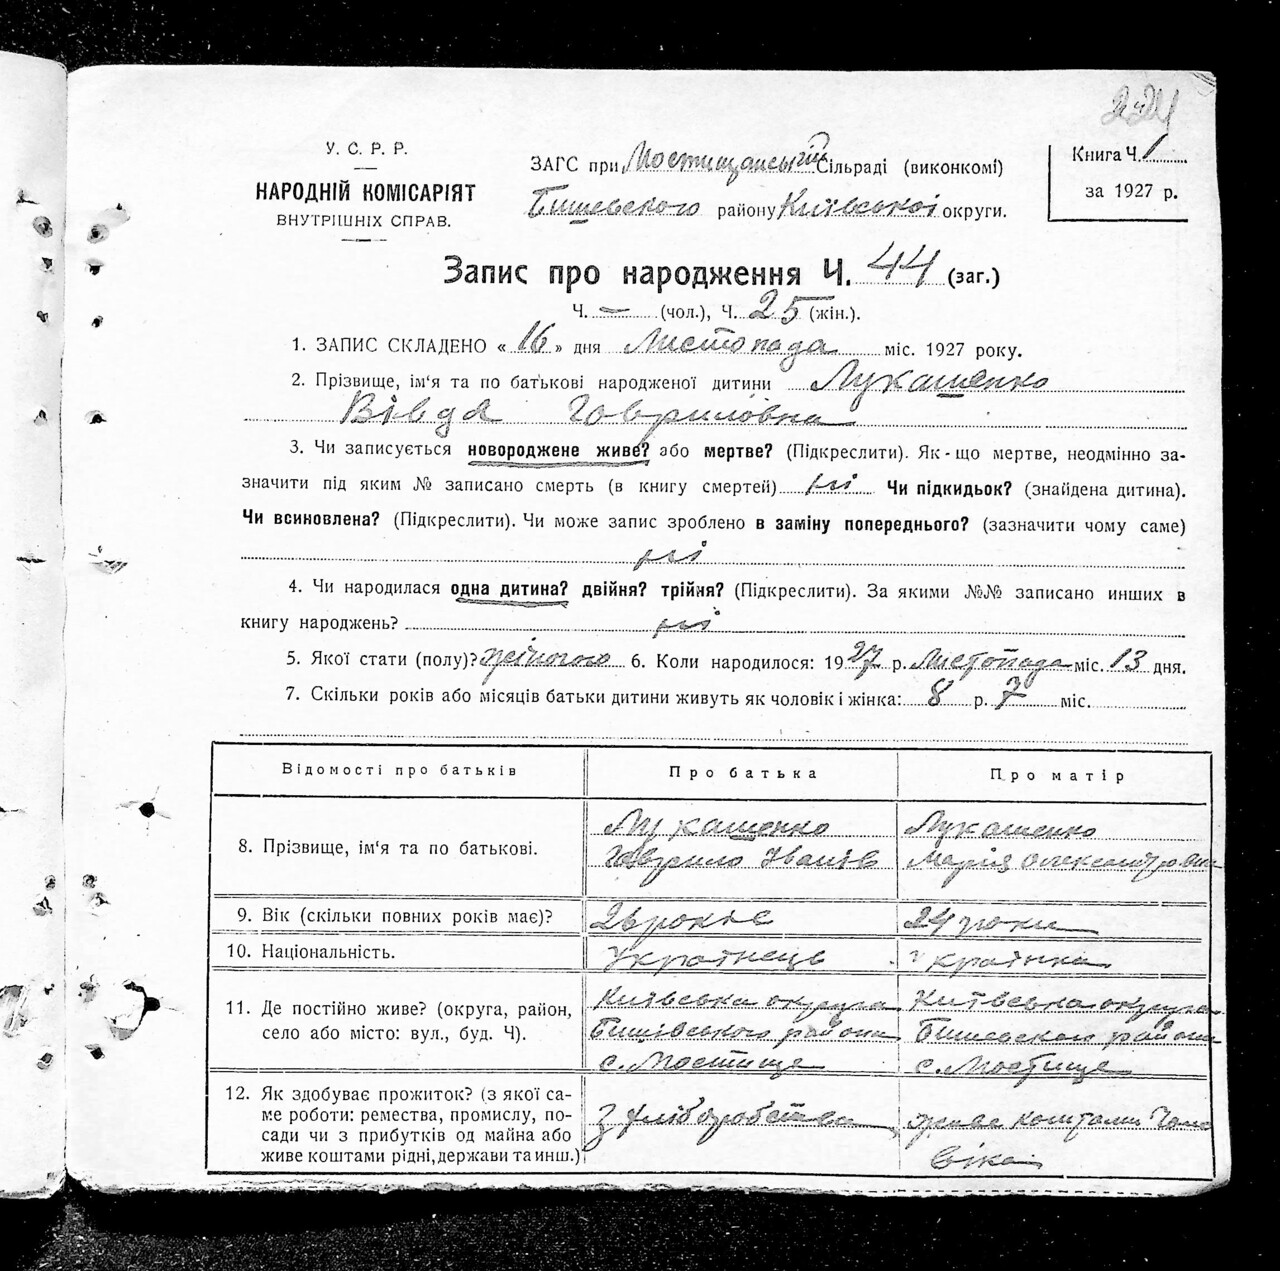 224
У. С. Р. Р.
НАРОДНІЙ КОМІСАРІЯТ
ВНУТРІШНІХ СПРАВ.
ЗАГС при Мостищанській Сільраді (виконкомі)
Бишевского району Київської округи.
Книга Ч. 1
за 1927 р.
Запис про народження Ч. 44 (заг.)
Ч. — (чол.), Ч. 25 (жін.).
1. ЗАПИС СКЛАДЕНО « 16 » дня Листопада міс. 1927 року.
2. Прізвище, ім'я та по батькові народженої дитини Лукашенко
Вівдя Гаврилівна
3. Чи записується новороджене живе? або мертве? (Підкреслити). Як-що мертве, неодмінно за-
значити під яким № записано смерть (в книгу смертей) ні Чи підкидьок? (знайдена дитина).
Чи всиновлена? (Підкреслити). Чи може запис зроблено в заміну попереднього? (зазначити чому саме)
ні
4. Чи народилася одна дитина? двійня? трійня? (Підкреслити). За якими №№ записано инших в
книгу народжень? ні
5. Якої стати (полу)? жіночого 6. Коли народилося: 1927 р. Листопада міс. 13 дня.
7. Скільки років або місяців батьки дитини живуть як чоловік і жінка: 8 р. 7 міс.
Відомості про батьків Про батька Про матір
8. Прізвище, ім'я та по батькові.
Лукашенко Лукашенко
Гаврило Іванів Марія Олександровна
9. Вік (скільки повних років має)? 26 років 24 роки
10. Національність. Українець українка
11. Де постійно живе? (округа, район,
село або місто: вул., буд. Ч).
Київська округа Київська округа
Бишівського району Бишевского району
с. Мостище с. Мостище
12. Як здобуває прожиток? (з якої са-
ме роботи: ремества, промислу, по-
сади чи з прибутків од майна або
живе коштами рідні, держави та инш.)
з хліборобства живе коштами Чоло
віка